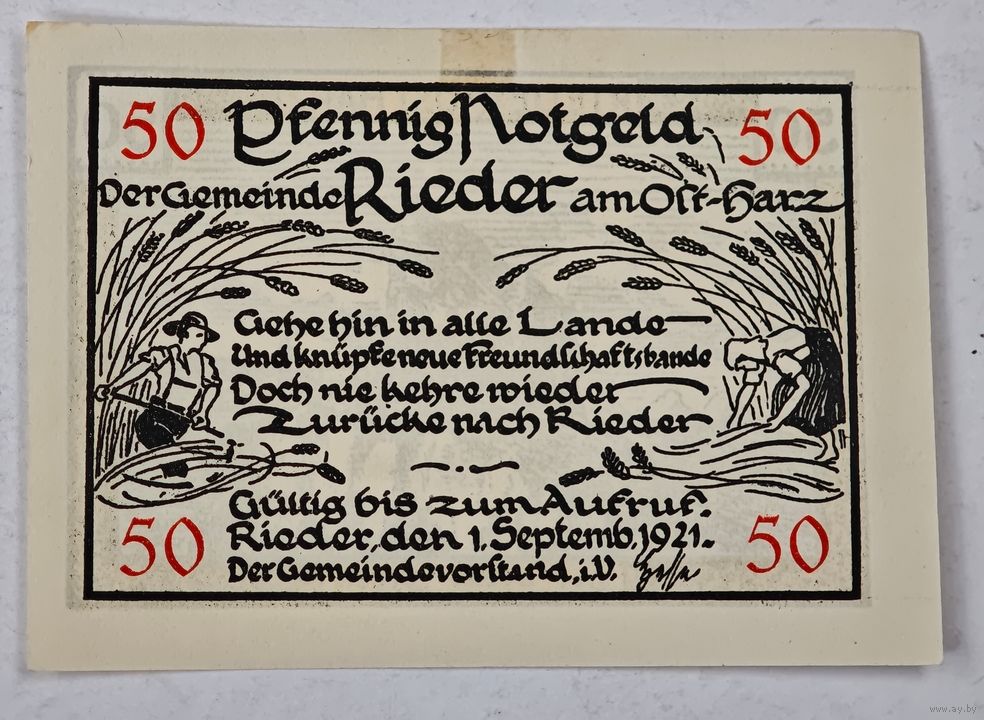 50 Pfennig Notgeld 50
Der Gemeinde Rieder am Ost-Harz
Gehe hin in alle Lande
Und knüpfe neue Freundschaftsbande
Doch nie kehre wieder
Zurücke nach Rieder
Gültig bis zum Aufruf.
50 Rieder, den 1. Septemb. 1921. 50
Der Gemeindevorstand, i.V.
www.ay.by